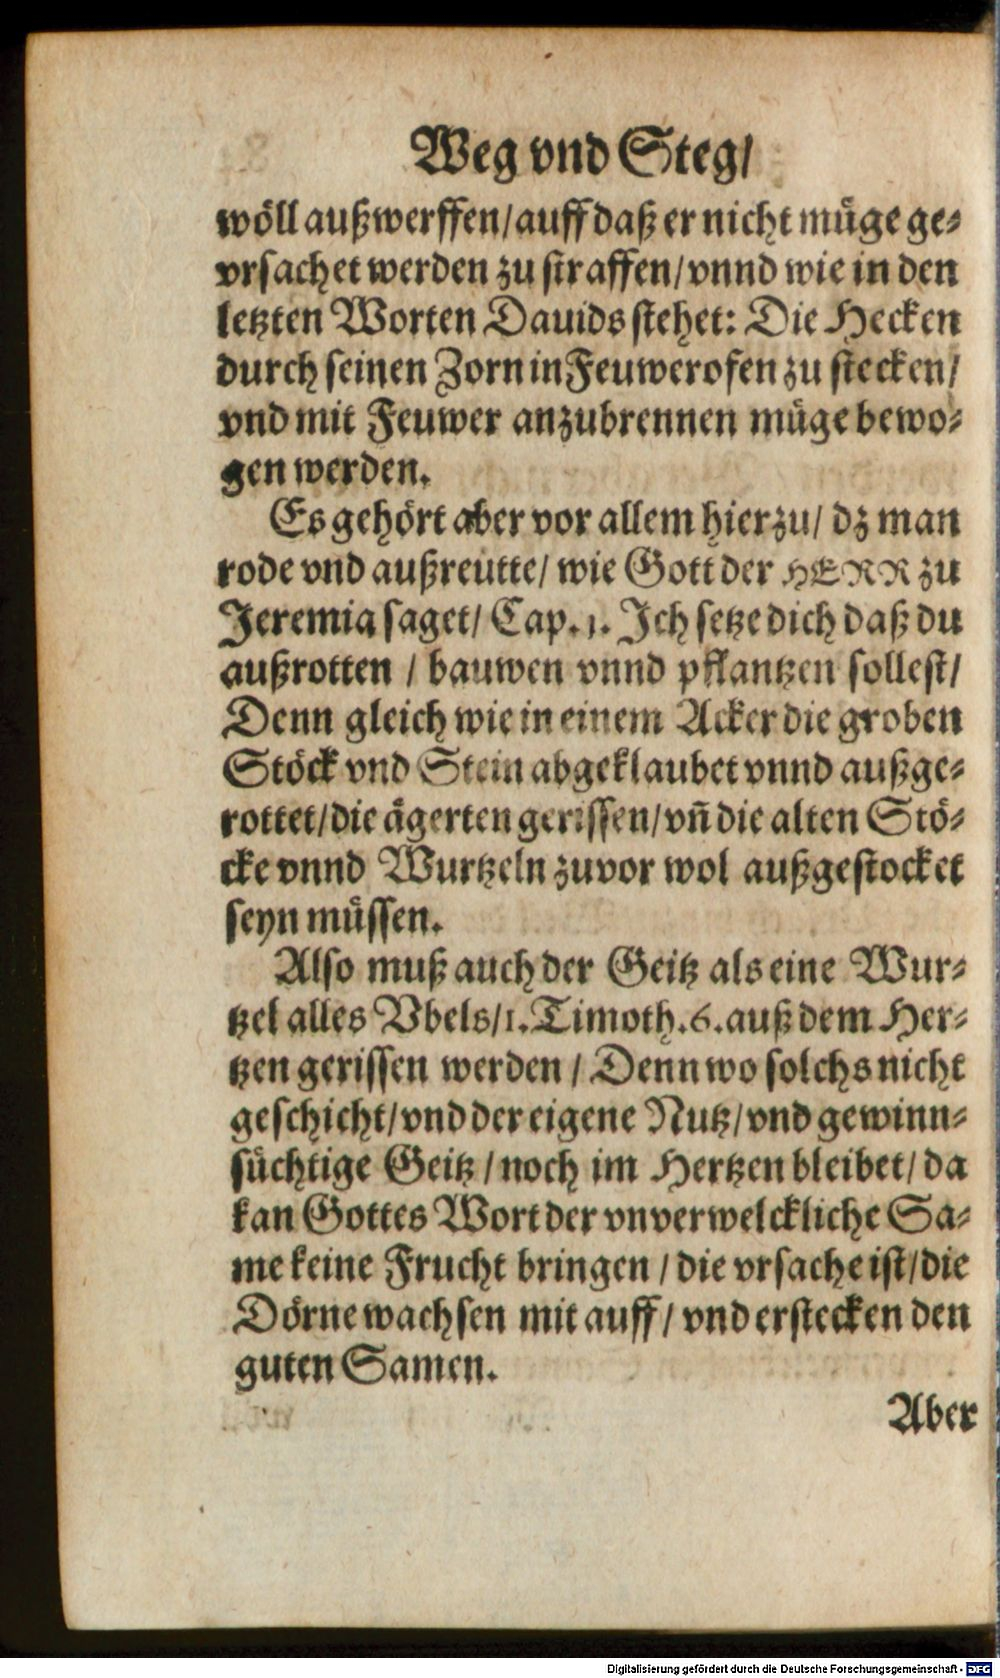 Weg vnd Steg/
wöll außwerffen/auff daß er nicht müge ge-
vrsachet werden zu straffen/vnnd wie in den
letzten Worten Dauids stehet: Die Hecken
durch seinen Zorn in Feuwerofen zu stecken/
vnd mit Feuwer anzubrennen müge bewo-
gen werden.
Es gehört aber vor allem hierzu/ dz man
rode vnd außreutte/ wie Gott der HERR zu
Jeremia saget/ Cap. 1. Ich setze dich daß du
außrotten / bauwen vnnd pflantzen sollest/
Denn gleich wie in einem Acker die groben
Stöck vnd Stein abgeklaubet vnnd außge-
rottet/die ägerten gerissen/vn̄ die alten Stö-
cke vnnd Wurtzeln zuvor wol außgestocket
seyn müssen.
Also muß auch der Geitz als eine Wur-
tzel alles Vbels/1. Timoth. 6. auß dem Her-
tzen gerissen werden / Denn wo solchs nicht
geschicht/vnd der eigene Nutz/vnd gewinn-
süchtige Geitz / noch im Hertzen bleibet/ da
kan Gottes Wort der vnverwelckliche Sa-
me keine Frucht bringen / die vrsache ist/die
Dörne wachsen mit auff / vnd erstecken den
guten Samen.
Aber
Digitalisierung gefördert durch die Deutsche Forschungsgemeinschaft - DFG